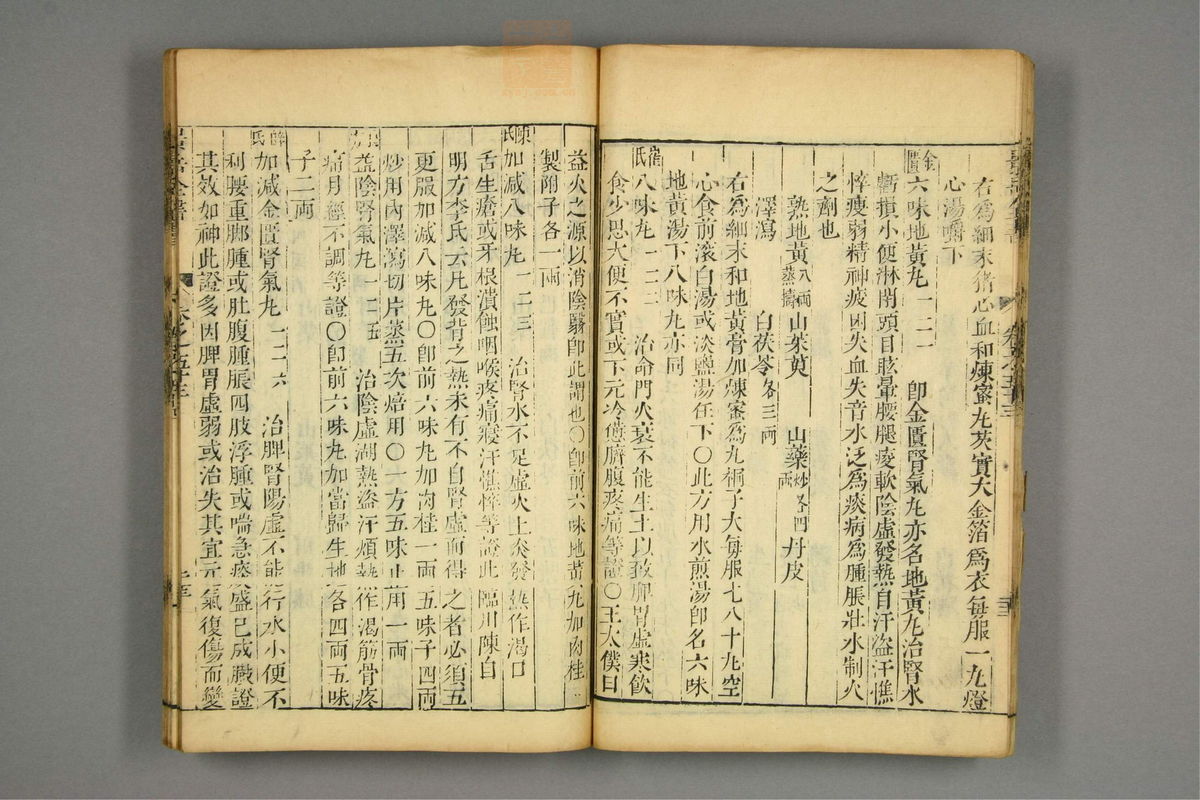 右為細末猪心血和煉蜜丸芡實大金箔為衣每服一丸燈
心湯嚼下
金匱六味地黃丸 一二一 即金匱腎氣丸亦名地黃丸治腎水
虧損小便淋閉頭目眩暈腰腿痠軟陰虛發熱自汗盜汗憔
悴瘦弱精神疲困失血失音水泛為痰病為腫脹壯水制火
之劑也
熟地黃八兩蒸搗 山茱萸 山藥炒各四兩 丹皮
澤瀉 白茯苓各三兩
右為細末和地黃膏加煉蜜為丸桐子大每服七八十丸空
心食前滾白湯或淡鹽湯任下○此方用水煎湯即名六味
地黃湯下八味丸亦同
崔氏八味丸 一二二 治命門火衰不能生土以致脾胃虛寒飲
食少思大便不實或下元冷憊臍腹疼痛等證○王太僕曰
益火之源以消陰翳即此謂也○即前六味地黃丸加肉桂
製附子各一兩
陳氏加減八味丸 一二三 治腎水不足虛火上炎發熱作渴口
舌生瘡或牙根潰蝕咽喉疼痛寢汗憔悴等證此臨川陳自
明方李氏云凡發背之熱未有不自腎虛而得之者必須五
更服加減八味丸○即前六味丸加肉桂一兩 五味子四兩
炒用內澤瀉切片蒸五次焙用○一方五味止用一兩
益陰腎氣丸 一二五 治陰虛潮熱盜汗煩熱作渴筋骨疼
痛月經不調等證○即前六味丸加當歸生地各四兩五味
子二兩
薛氏加減金匱腎氣丸 一二六 治脾腎陽虛不能行水小便不
利腰重脚腫或肚腹腫脹四肢浮腫或喘急痰盛已成臌證
其效如神此證多因脾胃虛弱或治失其宜元氣復傷而變